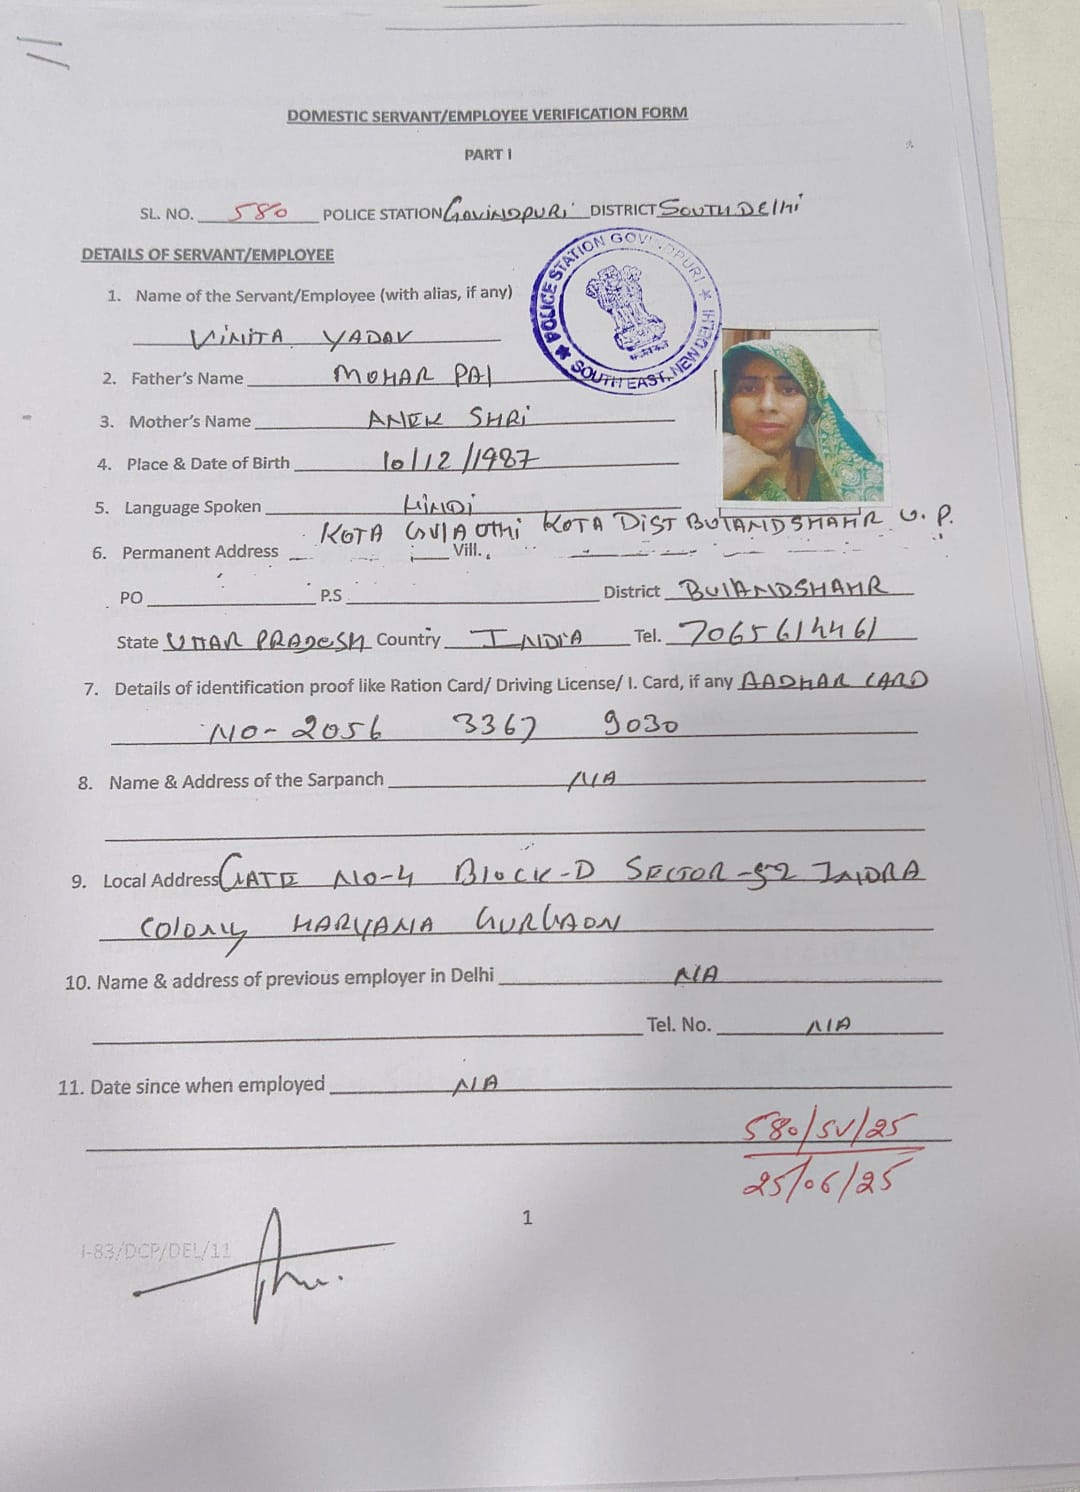 DOMESTIC SERVANT/EMPLOYEE VERIFICATION FORM
PART I
SL. NO. 580 POLICE STATION GOVINDPURI DISTRICT SOUTH DElHi
POLICE STATION GOVINDPURI ★ SOUTH EAST, NEW DELHI ★
DETAILS OF SERVANT/EMPLOYEE
1. Name of the Servant/Employee (with alias, if any)
ViNITA YADAV
2. Father's Name MOHAR PAl
3. Mother's Name ANEK SHRi
4. Place & Date of Birth 10/12/1987
5. Language Spoken HiNDi
KOTA DIST BUlANDSHAHR U.P.
6. Permanent Address KOTA Vill.
PO P.S District BUlANDSHAHR
State UTTAR PRADESH Country INDiA Tel. 7065614461
7. Details of identification proof like Ration Card/ Driving License/ I. Card, if any AADHAR CARD
NO- 2056 3367 9030
8. Name & Address of the Sarpanch N/A
9. Local Address GATE NO-4 BlOCK-D SECTOR-52 INDRA
COlONY HARYANA GURGAON
10. Name & address of previous employer in Delhi N/A
Tel. No. N/A
11. Date since when employed N/A
580/SV/25
25/06/25
1
I-83/DCP/DEL/11